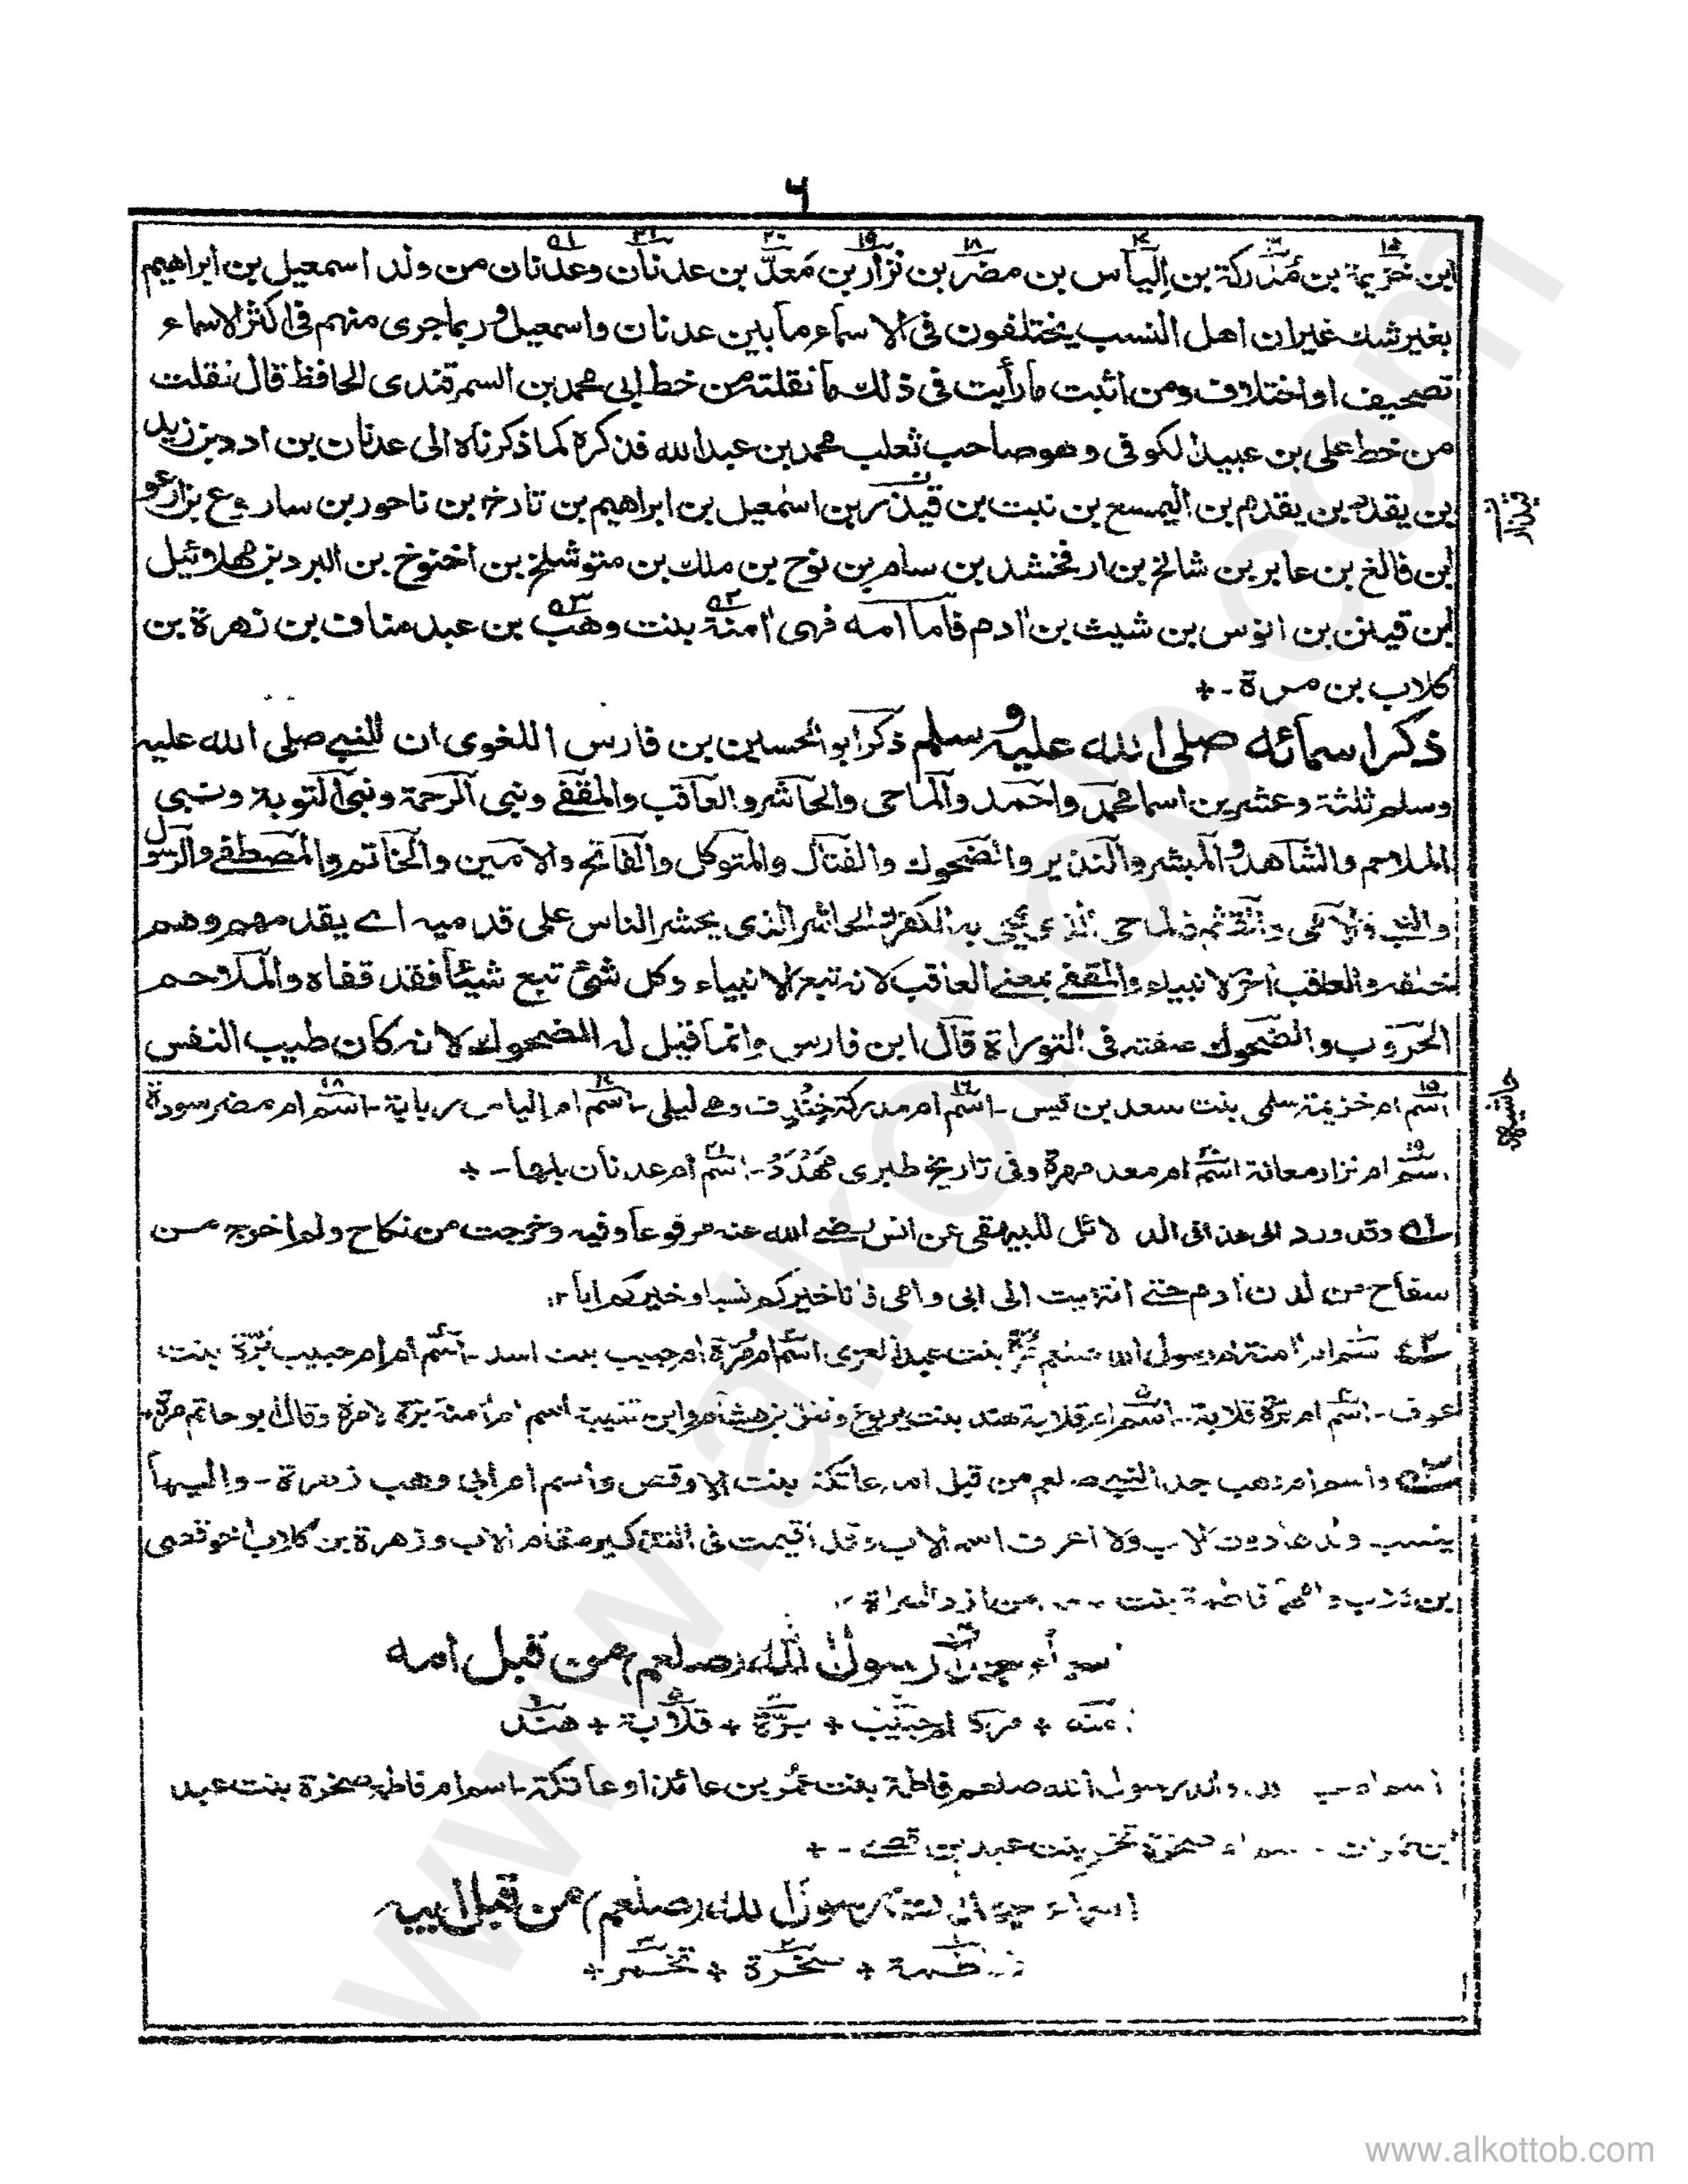 ٦
ابن خزيمة بن مدركة بن إلياس بن مضر بن نزار بن معدّ بن عدنان وعدنان من ولد اسمعيل بن ابراهيم
بغير شك غير ان اهل النسب يختلفون في الاسماء ما بين عدنان واسمعيل وربما جرى منهم في اكثر الاسماء
تصحيف او اختلاف ومن اثبت ما رأيت في ذلك ما نقلته من خط ابي محمد بن السمرقندي الحافظ قال نقلت
من خط علي بن عبيد الكوفي وهو صاحب ثعلب محمد بن عبد الله فذكره كما ذكرناه الى عدنان بن ادد بن زيد
بن يقدد بن يقدم بن اليمسع بن نبت بن قيذر بن اسمعيل بن ابراهيم بن تارخ بن ناحور بن ساروع بن ارعو
بن فالغ بن عابر بن شالخ بن ارفخشد بن سام بن نوح بن ملك بن متوشلخ بن اخنوخ بن البرد بن مهلائيل
بن قينن بن انوس بن شيث بن ادم فاما امه فهي امنة بنت وهب بن عبد مناف بن زهرة بن
كلاب بن مرة -+
ذكر اسمائه صلى الله عليه وسلم ذكر ابو الحسين بن فارس اللغوي ان للنبي صلى الله عليه
وسلم ثلثة وعشرين اسما محمد واحمد والماحي والحاشر والعاقب والمقفى ونبي الرحمة ونبي التوبة ونبي
الملاحم والشاهد والمبشر والنذير والضحوك والقتال والمتوكل والفاتح والامين والخاتم والمصطفى والرسول
والنبي والامي والقثم فالماحي الذي يمحى به الكفر والحاشر الذي يحشر الناس على قدميه اے يقدمهم وهم
خلفه والعاقب آخر الانبياء والمقفى بمعنى العاقب لانه تبع الانبياء وكل شئ تبع شيئاً فقد قفاه والملاحم
الحروب والضحوك صفته في التوراة قال ابن فارس وانما قيل له الضحوك لانه كان طيب النفس
حاشيه
اسم ام خزيمة سلمى بنت سعد بن قيس - اسم ام مدركة خندف وهے ليلى - اسم ام إلياس ربابة - اسم ام مضر سودة
اسم ام نزار معانة اسم ام معد مهرة وفي تاريخ طبري مهدد - اسم ام عدنان بلها -+
وقد ورد في الدلائل للبيهقي عن انس رضے الله عنه مرفوعا وفيه وخرجت من نكاح ولم اخرج من
سفاح من لدن ادم حتى انتهيت الى ابي وامي فانا خيركم نسبا وخيركم ابا ١٢
اسم ام امنة ام رسول الله صلعم برة بنت عبد العزى اسم ام برة ام حبيب بنت اسد - اسم ام ام حبيب برة بنت
عوف - اسم ام برة قلابة - اسم ام قلابة هند بنت يربوع ابن هشام وابن قتيبة اسم ام امنة برة لا مرة وقال ابو حاتم مرة
واسم ام وهب جد النبي صلعم من قبل امه عاتكة بنت الاوقص واسم ام ابي وهب زهرة - واليها
ينسب ولدها دون الاب ولا اعرف اسم الاب وقد اقيمت في التذكير مقام الاب وزهرة بن كلاب اخو قصى
بن كلاب وامهما فاطمة بنت من ازد السراة
رسول الله (صلعم) من قبل امه
امنه + مرة ام حبيب + برة + قلابة + هند
والد رسول الله صلعم فاطمة بنت عمر بن عائذ او عاتكة - اسم ام فاطمة صخرة بنت عبد
بن عمران صخرة تخمر بنت عبد بن قصے -+
اسماء رسول الله (صلعم) من قبل ابيه
فاطمة + سخرة + تخمر +
www.alkottob.com
www.alkottob.com